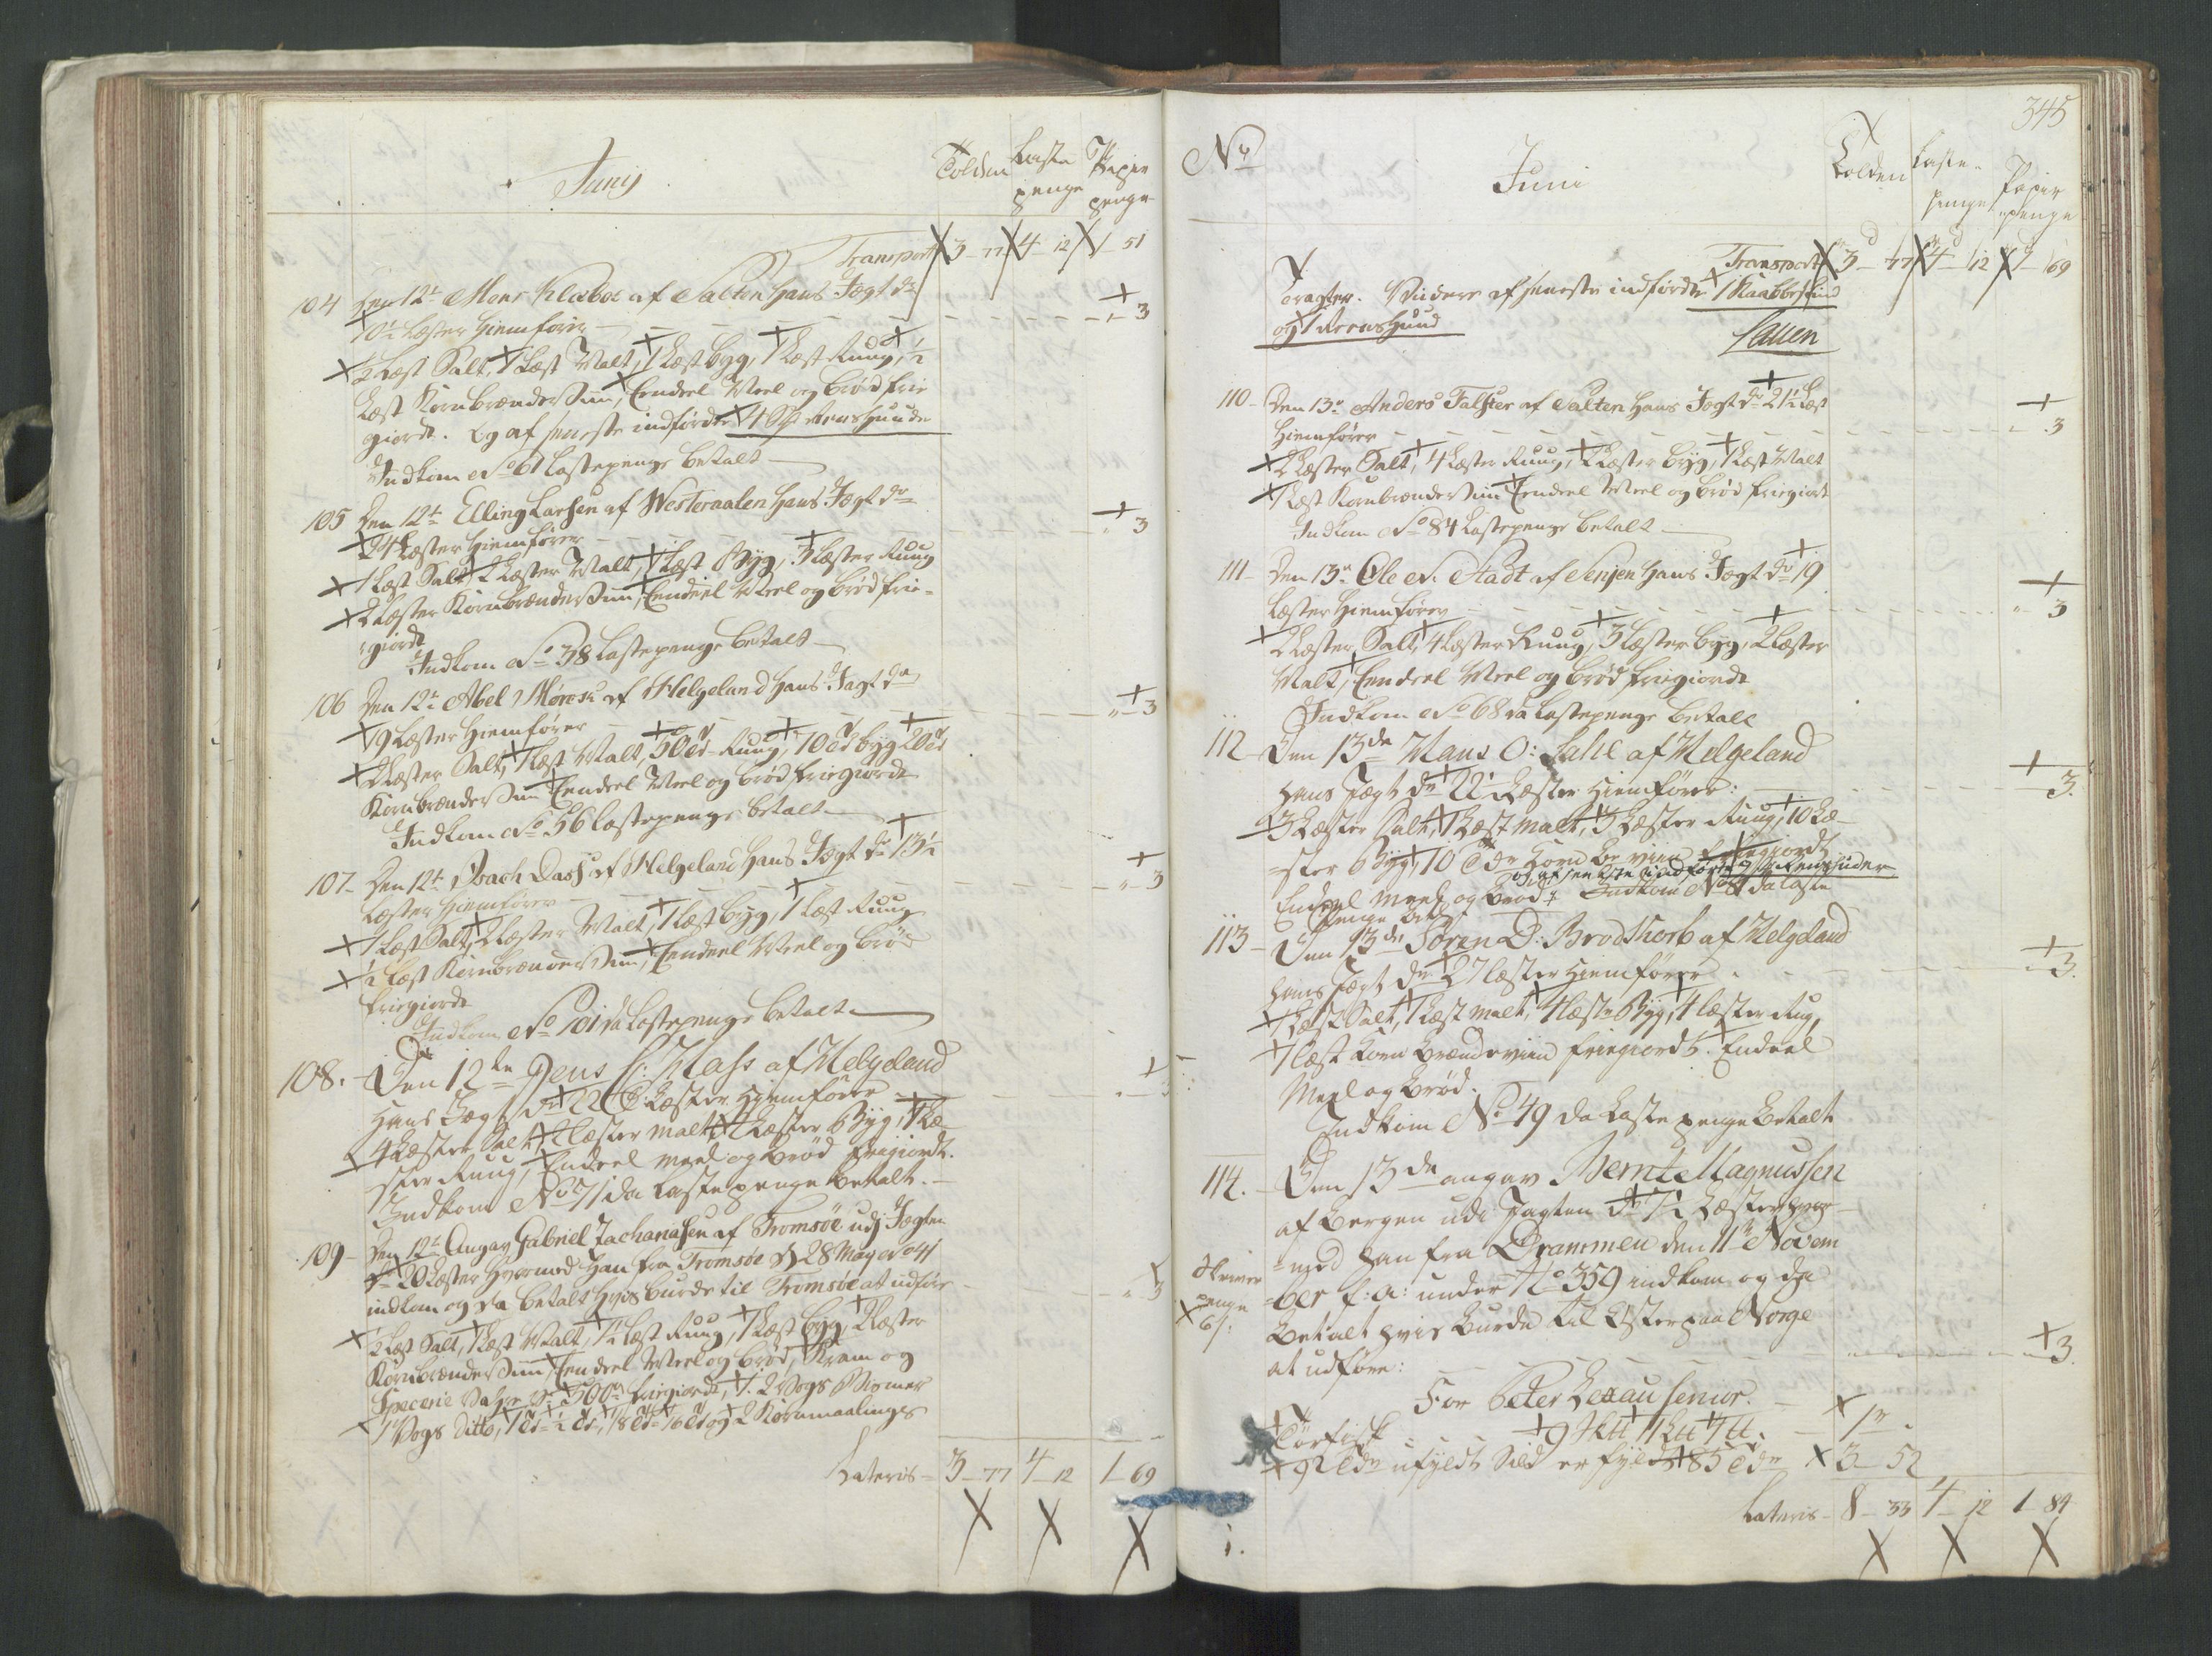 Junij
Tolden Laste penge Papir penge
Transport 3-77 4-12 1-51
104 Den 12te Mons Klæboe af Salten hans Jægt dr
10½ Læster hiemfører 3
½ Læst Salt, 1 Læst Malt, 1 Læst byg, 1 Læst Ruug, ½
Læst Kornbrændeviin, Eendeel Meel og brød frie
giordt. Og af seneste indførde 4 Reenshuude
Indkom No 61 Lastepenge betalt
105 Den 12te Elling Larsen af Westeraalen hans Jægt dr
24 Læster hiemfører 3
1 Læst Salt, 2 Læster Malt, 1 Læst Byg, 3 Læster Ruug
2 Læster Kornbrændeviin, Eendeel Meel og brød frie-
giordt
Indkom No 38 Lastepenge betalt
106 Den 12te Abel af Helgeland hans Jægt dr
19 Læster hiemfører 3
2 Læster Salt, 1 Læst Malt, 50 Td Ruug, 10 Td byg 20 Td
Kornbrændeviin Eendeel Meel og brød friegiordt
Indkom No 56 Lastepenge betalt
107 Den 12te Isach Dass af Helgeland hans Jægt dr 13½
Læster hiemfører 3
1 Læst Salt, 2 Læster Malt, 1 Læst byg, 1 Læst Ruug
½ Læst Kornbrændeviin, Eendeel Meel og brød
friegiordt
Indkom No 101 da Lastepenge betalt
108. Den 12te Jens H: Mass af Helgeland
hans Jægt dr 22 Læster hiemfører 3
4 Læster Salt, 2 Læster Malt, 2 Læster Byg, 4 Læ-
ster Ruug, Endeel Meel og brød friegiordt.
Indkom No 71 da Lastepenge betalt.
109 Den 12te Angav Gabriel Zachariasen af Tromsøe udj Jægten
dr 20 Læster hvormed han fra Tromsøe d 28 May No 41
indkom og da betalt hvis burde til Tromsøe at udføre 3
½ Læst Salt, 1 Læst Malt, 1½ Læst Ruug, 1 Læst byg, 2 Læster
Kornbrændeviin Eendeel Meel og brød, Kram og
Specerie Vahre for 500 friegiordt, 1. 2 Vogs Bismer
1 Vogs Ditto, 1 Td ½ Td 1/8 Td 1/16 Td og 2 Kornmaalinger
Lateris 3-77 4-12 1-69
No
Juni
345
Tolden Laste-penge Papir penge
Transport 3-77 4-12 1-69
Videre af seneste indførde 1 Kaabbeskind
og 1 Reenshuud
110 Den 13de Anders Falster af Salten hans Jægt dr 21½ Læst
hiemfører 3
2 Læster Salt, 4 Læster Ruug, 2 Læster byg, 1 Læst Malt
1 Læst Kornbrændeviin Eendeel Meel og brød friegiort
Indkom No 84 Lastepenge betalt
111 Den 13de Ole N. Stadt af Senjen hans Jægt dr 19
Læster hiemfører 3
2 Læster Salt, 4 Læster Ruug, 3 Læster byg, 2 Læster
Malt, Eendeel Meel og brød friegiordt
Indkom No 68 da Lastepenge betalt
112 Den 13de Mans O: af Helgeland
hans Jægt dr 22½ Læster hiemfører: 3.
3 Læster Salt, 1 Læst malt, 3 Læster Ruug, 10 Læ-
ster Byg, 10 Tdr Korn br. viin friegiordt
og af seneste indført 7 Reenshuder
Endeel meel og brød. Indkom No da Laste
penge bet.
113 Den 13de Søren D: Brodtkorb af Helgeland
hans Jægt dr 27 Læster hiemfører 3.
1 Læst Salt, 1 Læst malt, 4 Læster Byg, 4 Læster Rug,
1 Læst Korn brændeviin friegiordt. Endeel
Meel og brød.
Indkom No 49 da Laste penge betalt
114. Den 13de angav Bernt Magnussen
af Bergen udi Jagten dr 7½ Læster hvor-
med han fra Drammen den 11te Novem
ber f: a: under No 359 indkom og da
betalt hvis burde til Østerpaa Norge
at udføre: 3.
penge
6/:
For Peter senior.
Tørfisk 1
92 Tdr ufyldt Sild er fyldt 85 Tdr 3-52
Lateris 8-33 4-12 1-84